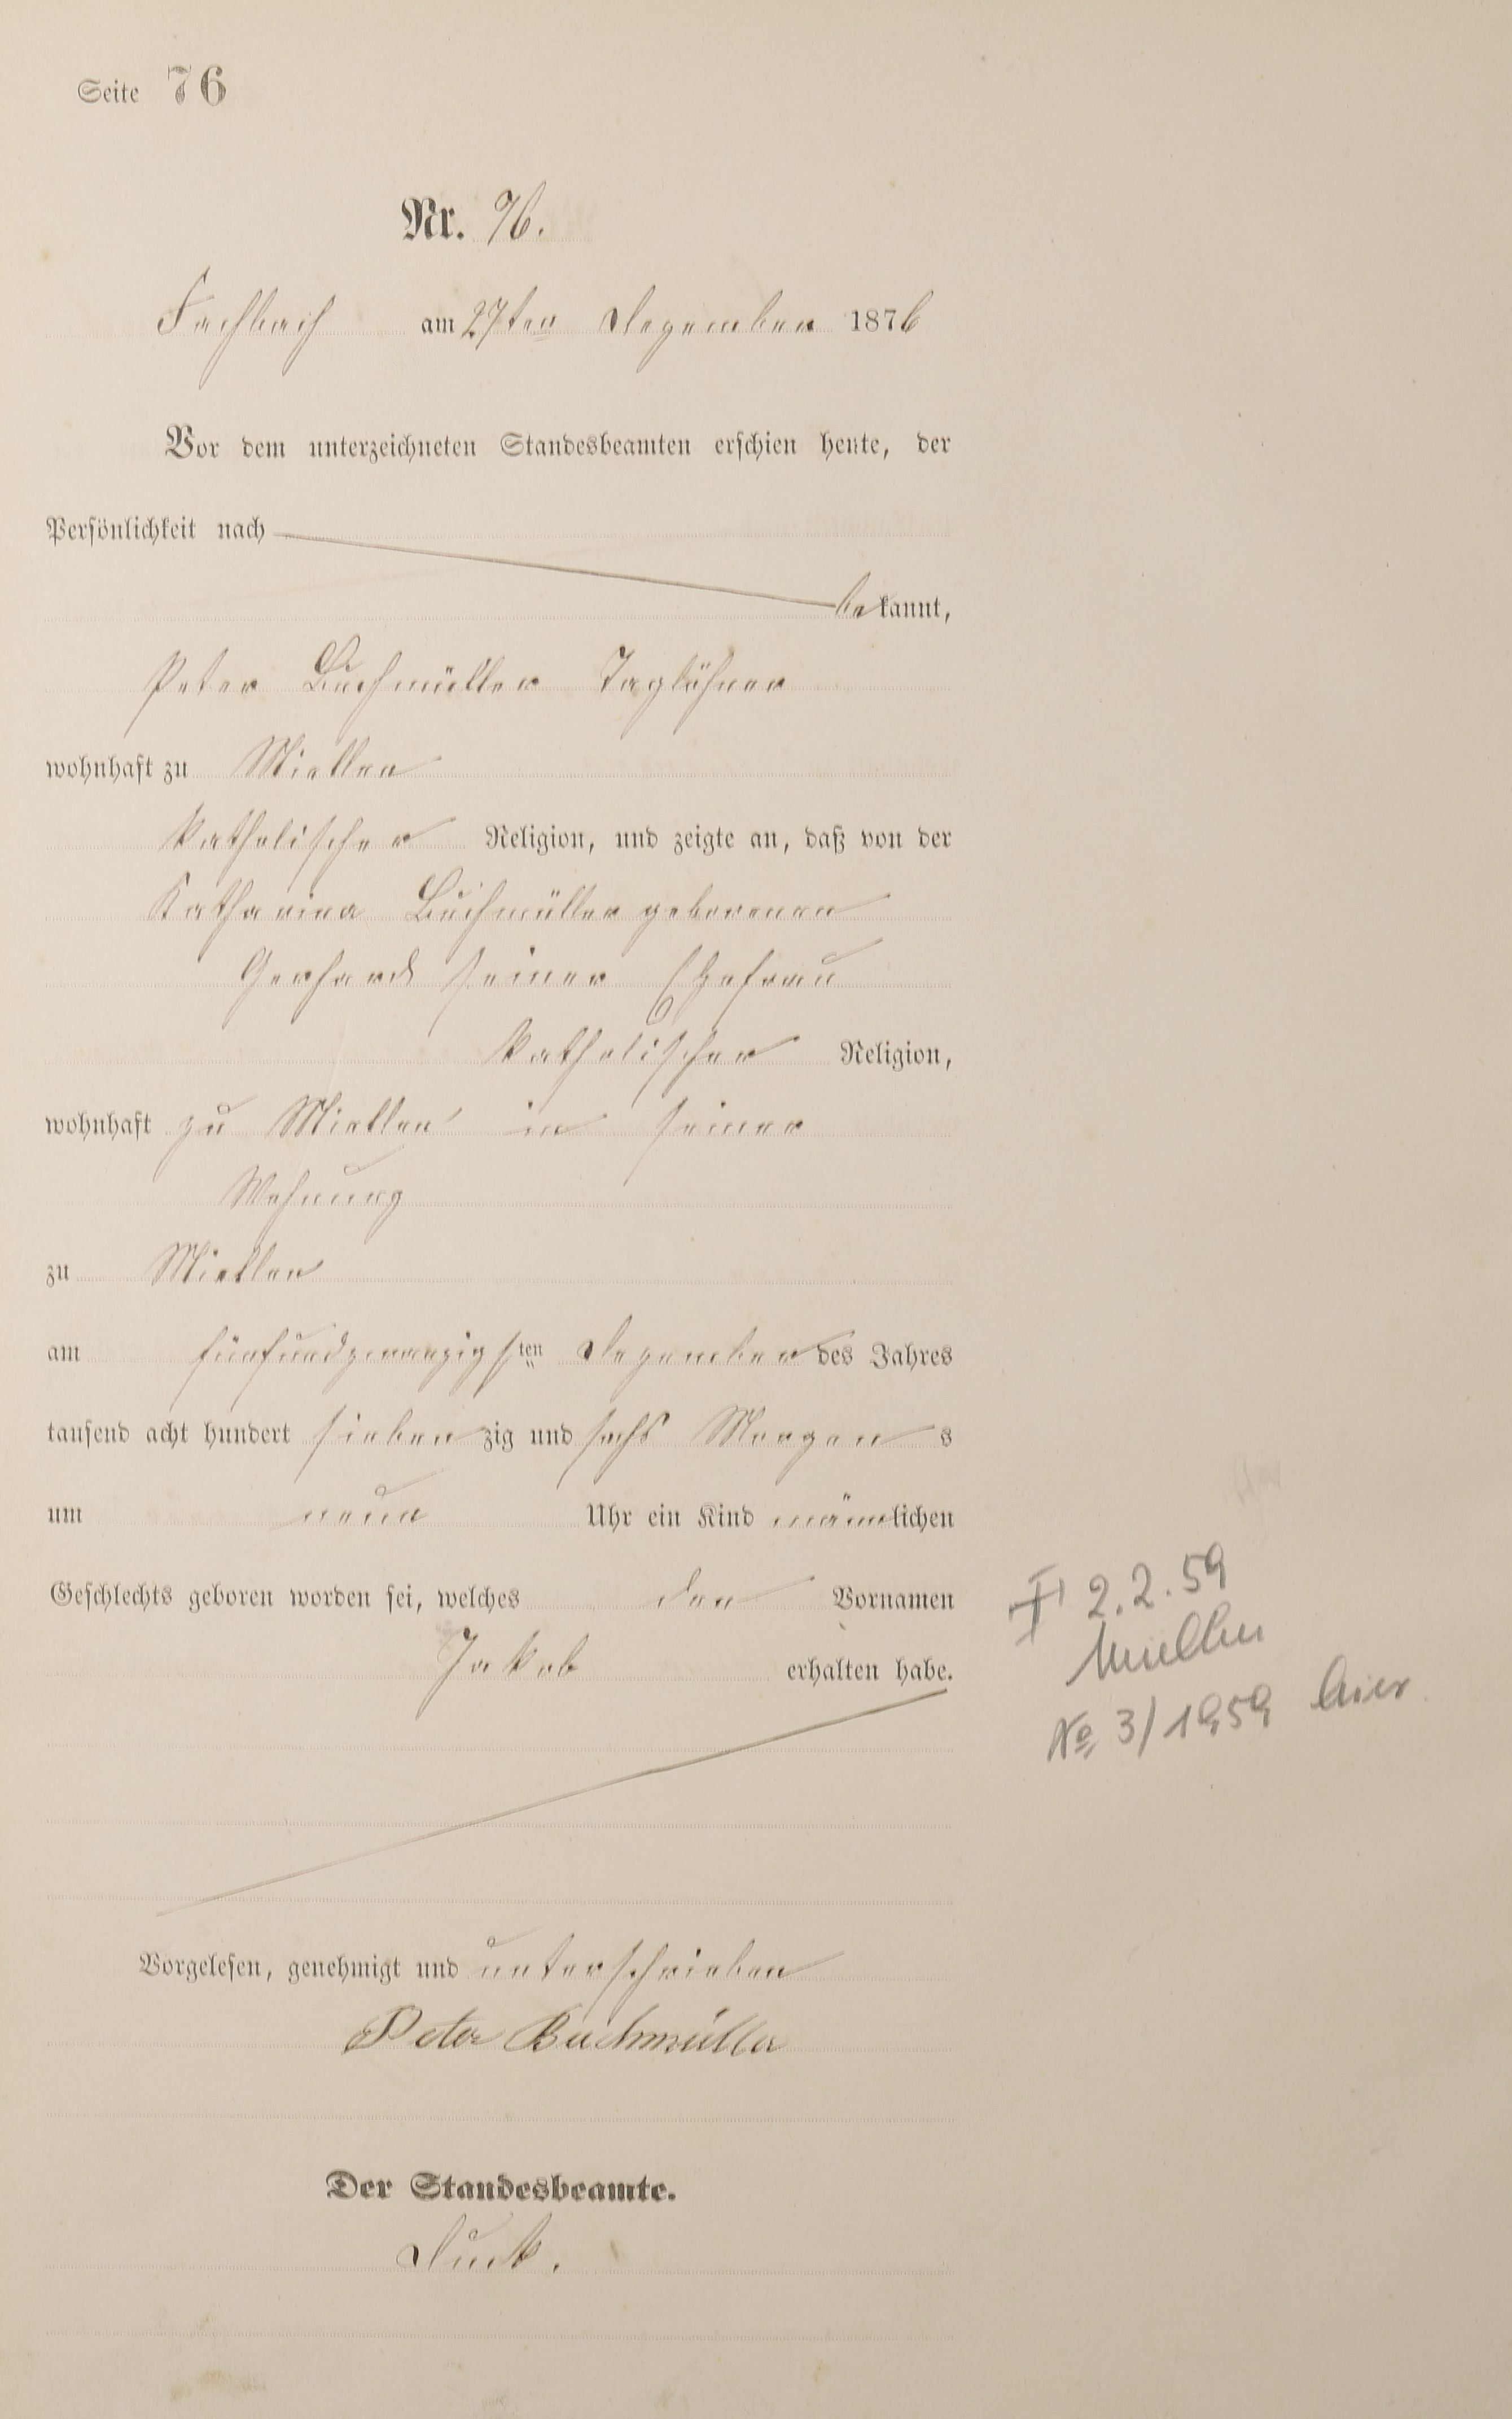 Seite 76
Nr. 76.
Fachbach am 27ten Dezember 1876
Vor dem unterzeichneten Standesbeamten erschien heute, der
Persönlichkeit nach
bekannt,
Peter Buchmüller Taglöhner
wohnhaft zu Miellen
katholischer Religion, und zeigte an, daß von der
Katharina Buchmüller geborenen
Gerhard seiner Ehefrau
katholischer Religion,
wohnhaft zu Miellen in seiner
Wohnung
zu Miellen
am fünfundzwanzigsten Dezember des Jahres
tausend acht hundert siebenzig und sechs Morgens
um neun Uhr ein Kind männlichen
Geschlechts geboren worden sei, welches den Vornamen
Jakob erhalten habe.
† 2.2.59
Miellen
No 3/1959 hier
Vorgelesen, genehmigt und unterschrieben
Peter Buchmüller
Der Standesbeamte.